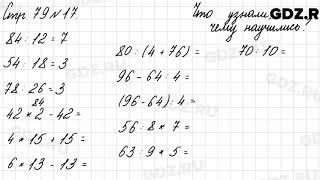 Стр 79 № 17.
Что узнали
чему научились?
GDZ.R
84 : 12 = 7
54 : 18 = 3
78 : 26 = 3
84
42 * 2 - 42 =
4 * 15 + 15 =
6 * 13 - 13 =
80 : (4 + 76) =
96 - 64 : 4 =
(96 - 64) : 4 =
56 : 8 * 7 =
63 : 9 * 5 =
70 : 10 =